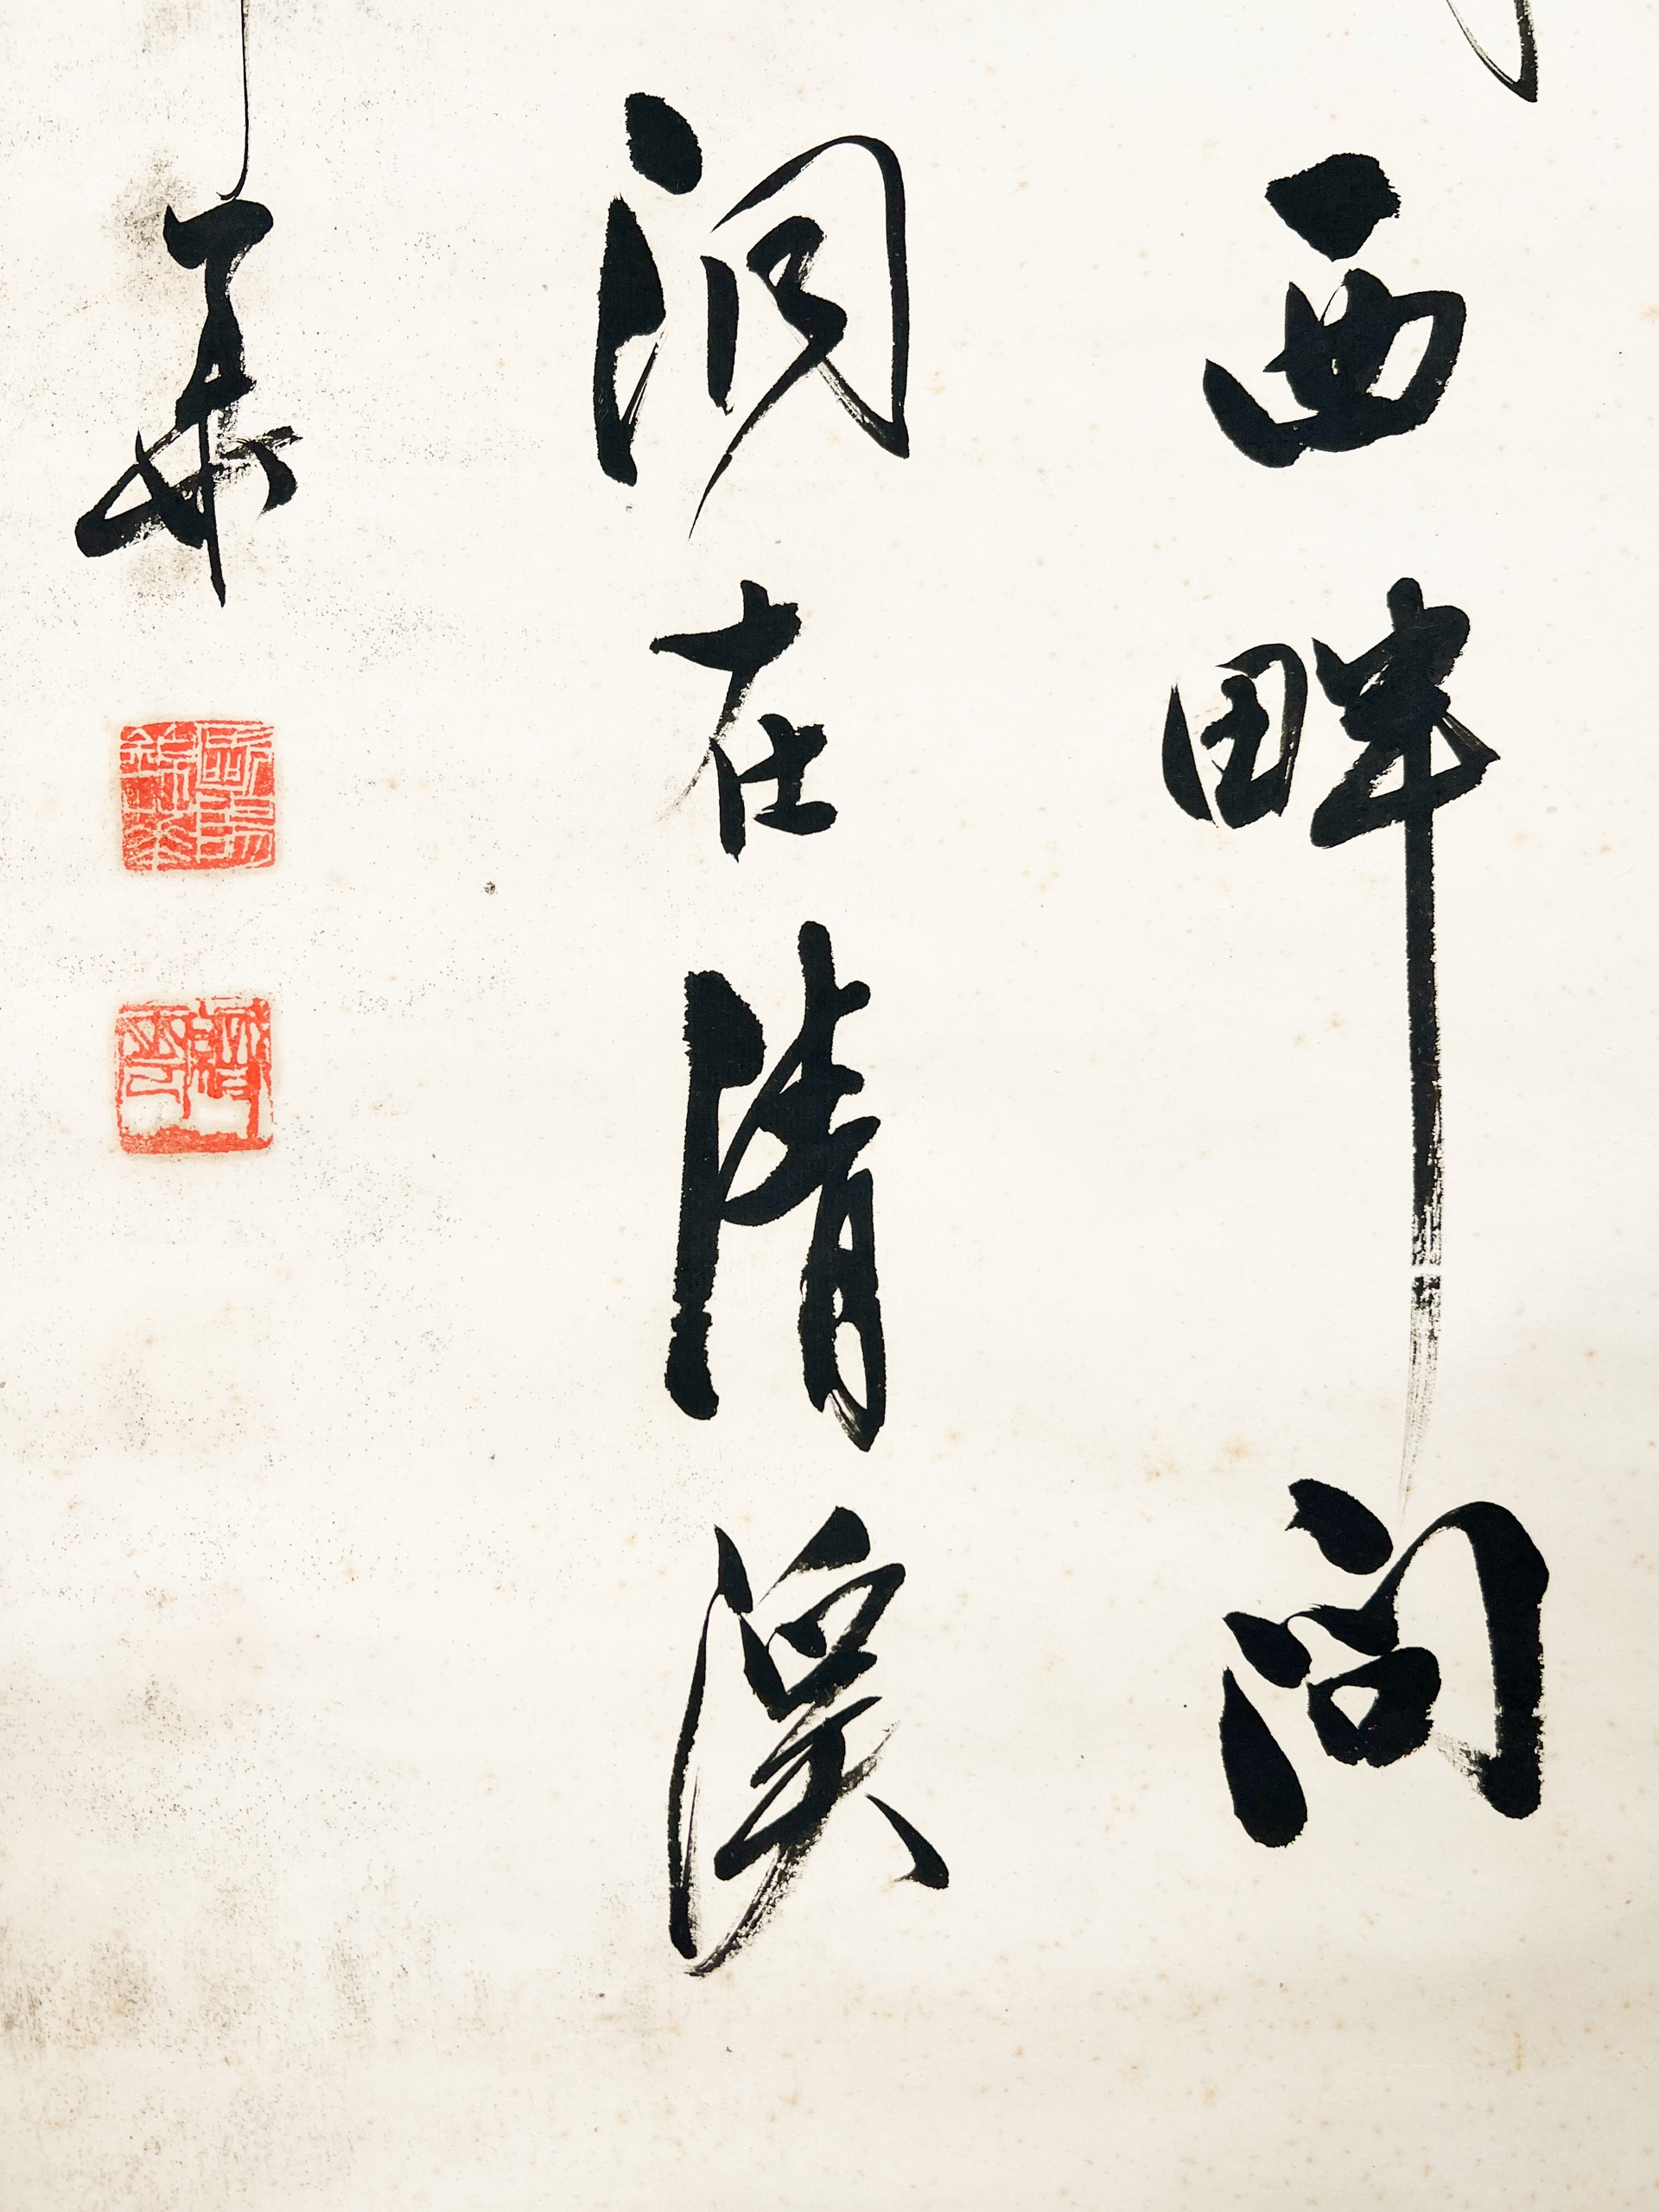 西畔問
洞在清溪
華